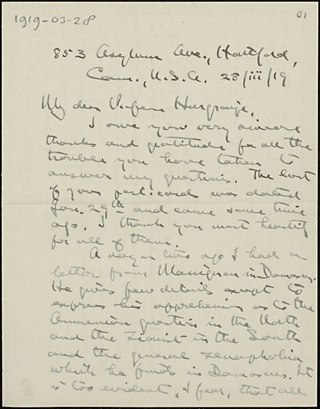 1919-03-28
01
853 Asylum Ave., Hartford,
Conn., U.S.A. 28/iii/19
My dear Professor Hurgronje,
I owe you very sincere
thanks and gratitude for all the
trouble you have taken to
answer my questions. The last
of your post-cards was dated
Jan. 29th and came some time
ago. I thank you most heartily
for all of them.
A day or two ago I had a
letter from Massignon in Damascus.
He gives few details except to
express his apprehension as to the
Armenian question in the North
and the Zionist in the South
and the general xenophobia
which he finds in Damascus. It
is too evident, I fear, that all